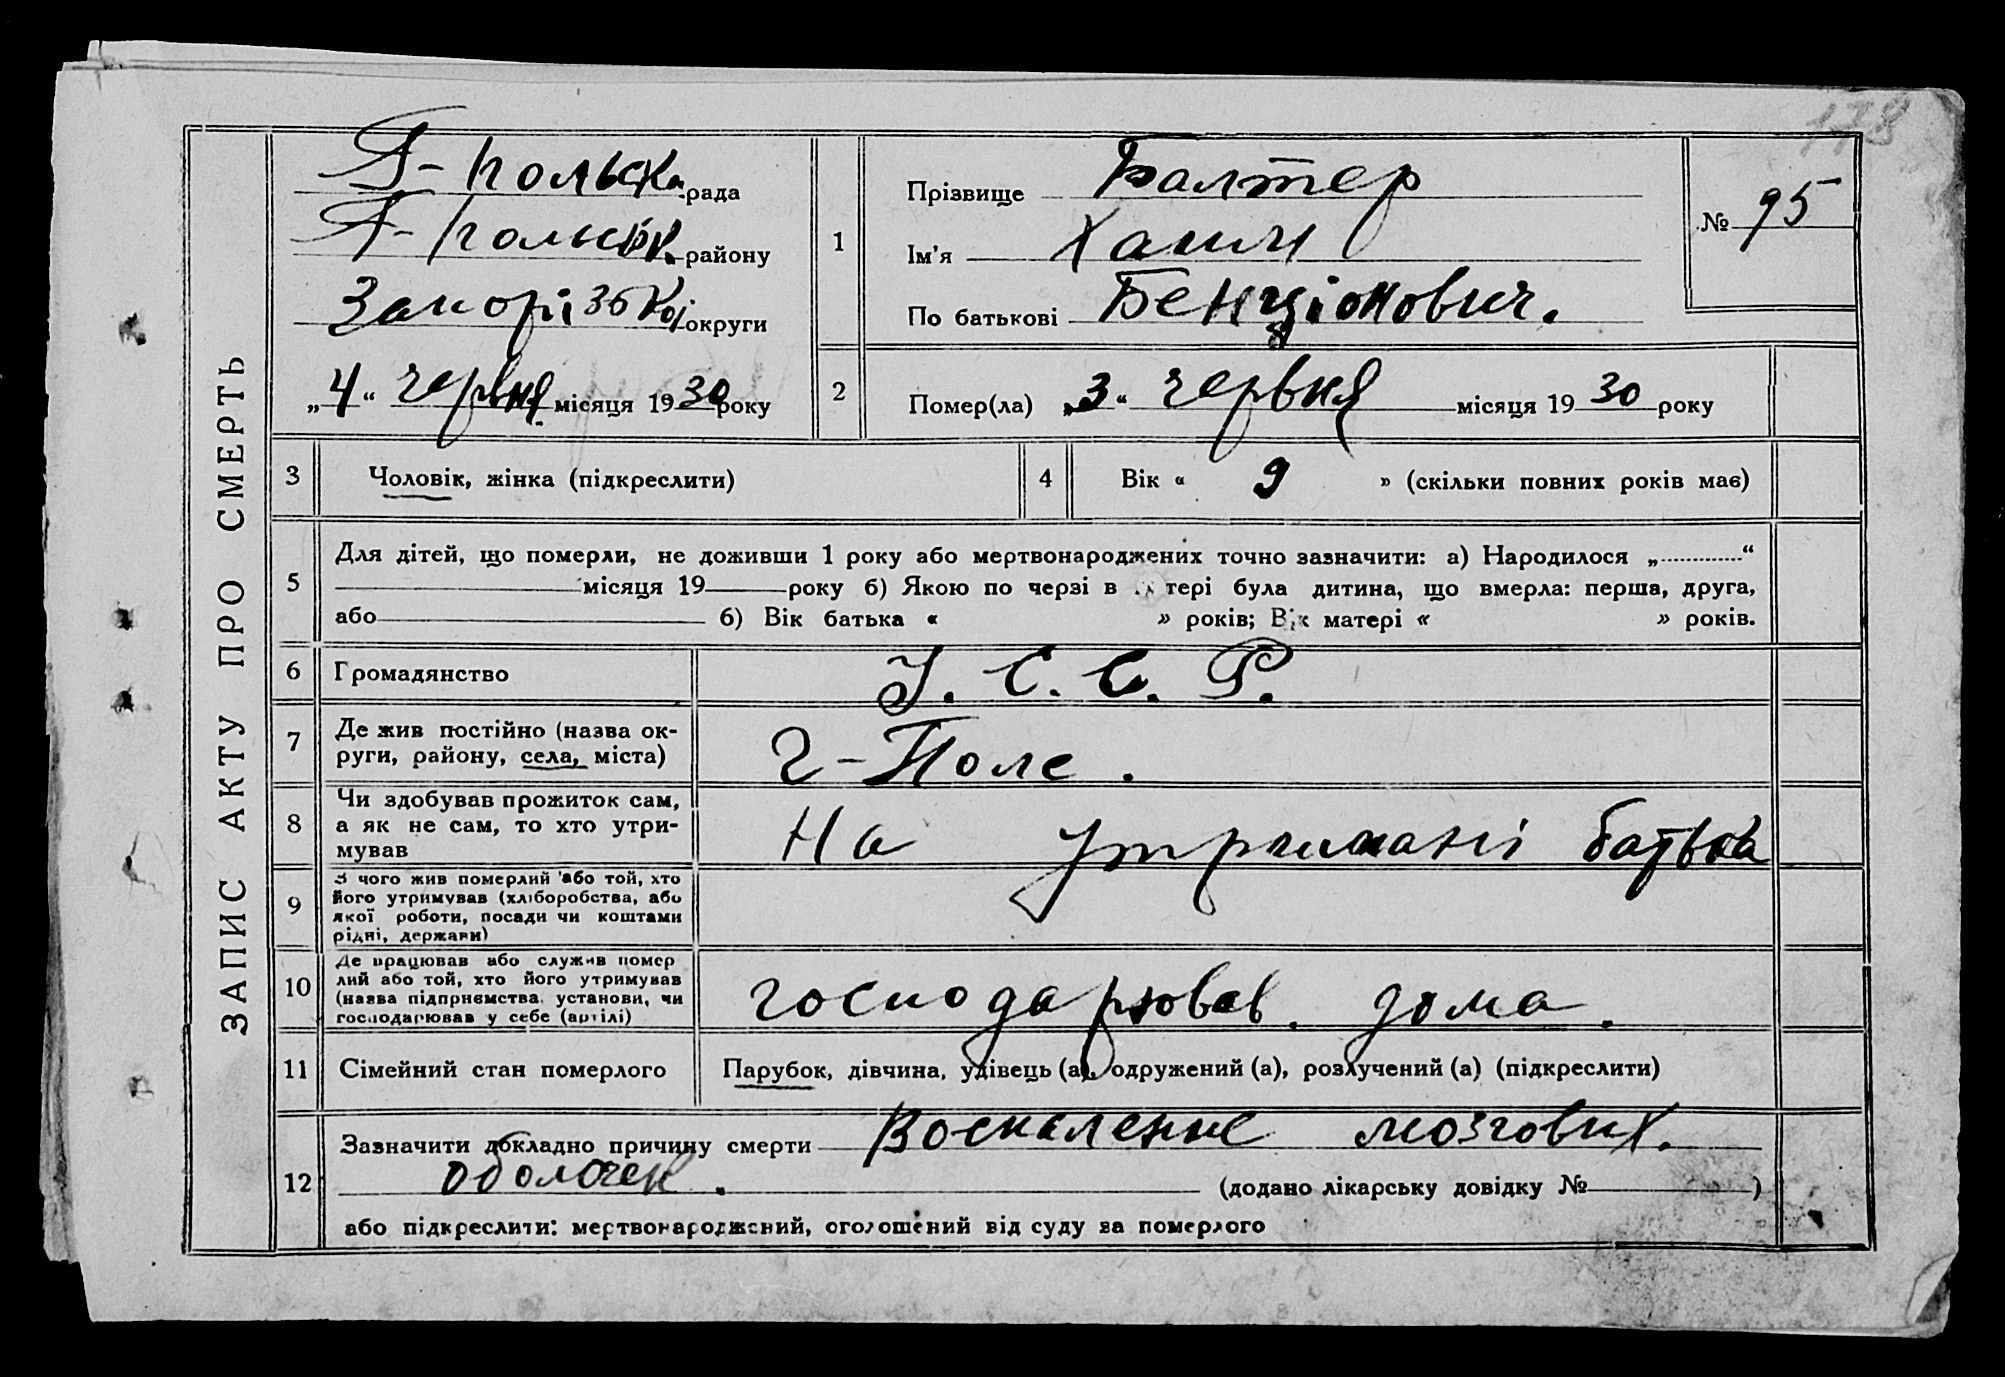 178
ЗАПИС АКТУ ПРО СМЕРТЬ
Г-Польська рада
Г-Польськ. району
Запорізької округи
„4“ червня місяця 1930 року
1
Прізвище Балтер
Ім'я Хаим
По батькові Бенціонович.
№ 95
2
Помер(ла) „3“ червня місяця 1930 року
3 Чоловік, жінка (підкреслити)
4 Вік « 9 » (скільки повних років має)
5
Для дітей, що померли, не доживши 1 року або мертвонароджених точно зазначити: а) Народилося „............“
місяця 19 року б) Якою по черзі в матері була дитина, що вмерла: перша, друга,
або б) Вік батька « » років; Вік матері « » років.
6 Громадянство У. С. С. Р.
7
Де жив постійно (назва ок-
руги, району, села, міста)
Г-Поле.
8
Чи здобував прожиток сам,
а як не сам, то хто утри-
мував
На утриманні батька
9
З чого жив померлий або той, хто
його утримував (хліборобства, або
якої роботи, посади чи коштами
рідні, держави)
10
Де працював або служив помер
лий або той, хто його утримував
(назва підприємства, установи, чи
господарював у себе (артілі)
господарював. дома.
11 Сімейний стан померлого Парубок, дівчина, удівець (а), одружений (а), розлучений (а) (підкреслити)
12
Зазначити докладно причину смерти Воспаление мозгових.
оболочек. (додано лікарську довідку № )
або підкреслити: мертвонароджений, оголошений від суду за померлого